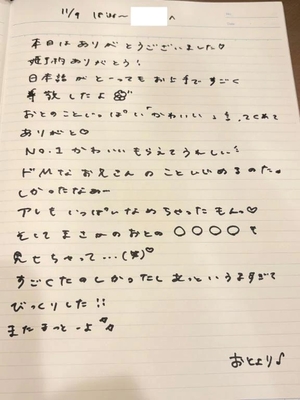 11/9
本日はありがとうございました♡
日本語がとーってもお上手ですごく
尊敬したよ
おとのこといっぱい「かわいい」っ言ってくれて
ありがと♡
No.1 かわいいもらえてうれしい
ドMなお兄さんのこといじめるのた。
しかったなぁー
アレもいっぱいなめちゃったもんっ♡
そしてまさかのおとの〇〇〇〇を
見せちゃって…(笑)♡
すごくたのしかったしあっというますぎて
びっくりした!!
またまっとーよ
おとより♪